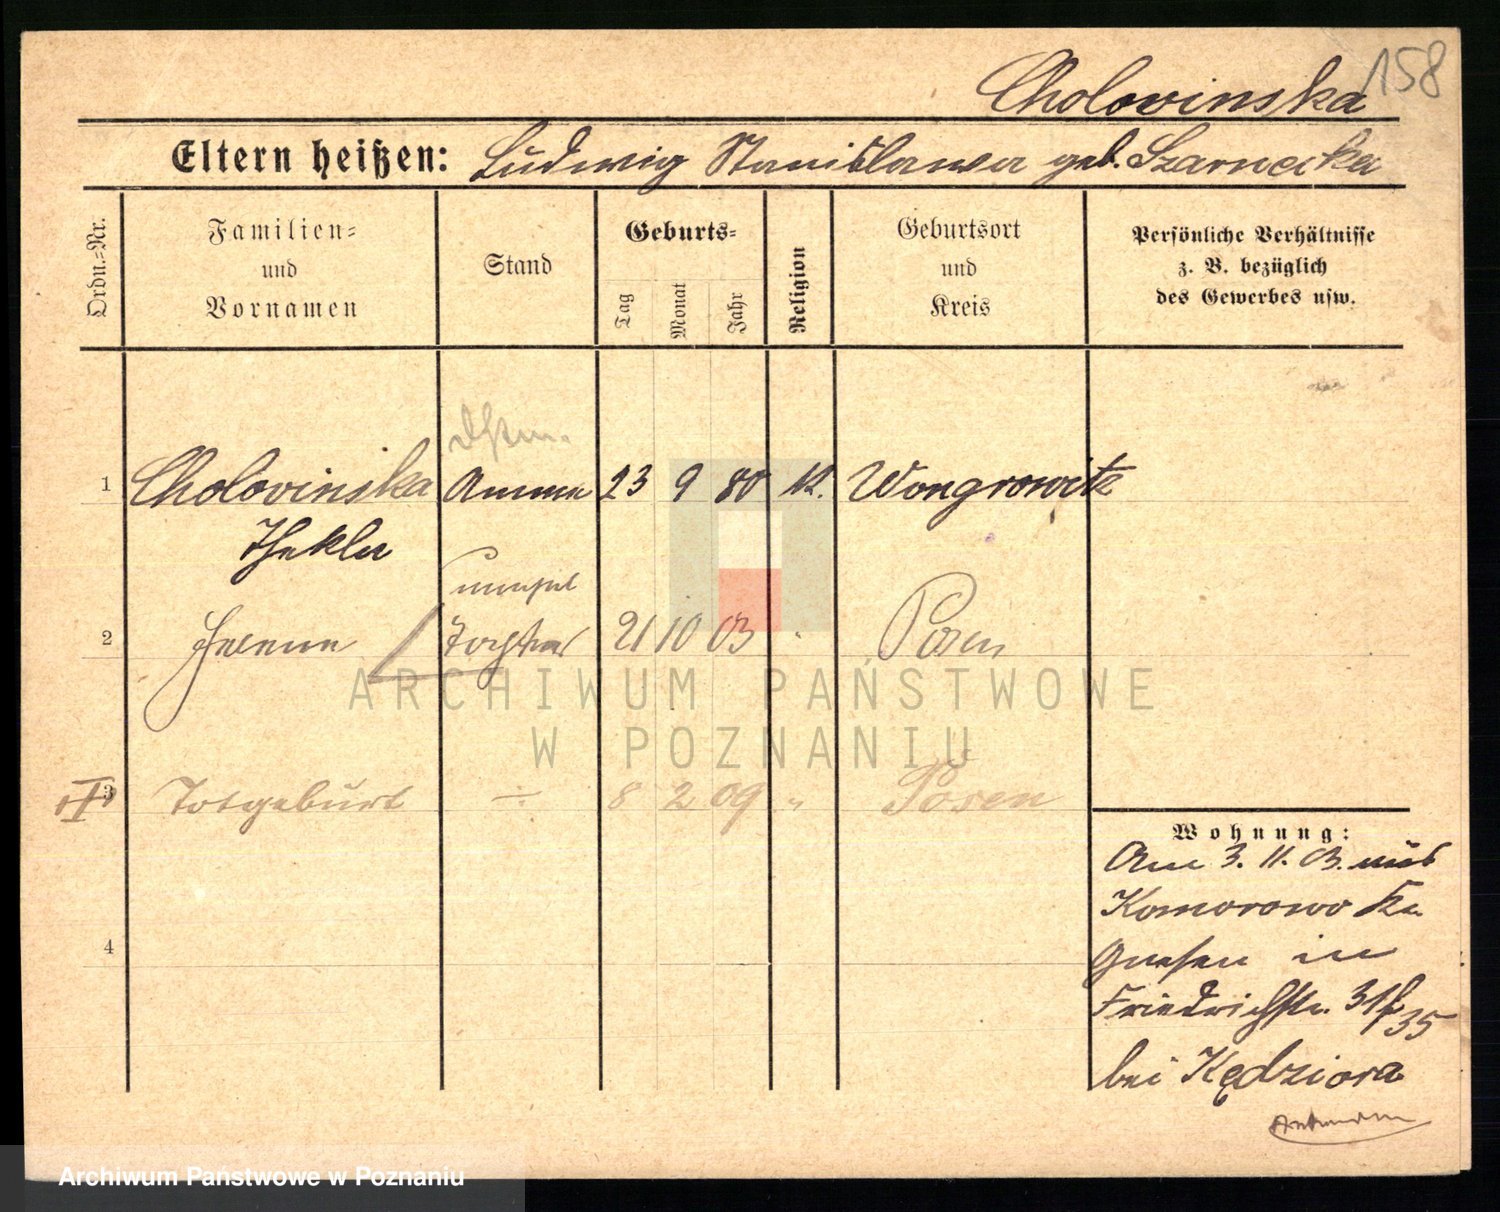 158
Cholovinska
Eltern heißen: Ludwig Stanislawa geb. Szarnecka
Ordn.=Nr.
Familien= und Vornamen
Stand
Geburts=
Tag
Monat
Jahr
Religion
Geburtsort und Kreis
Persönliche Verhältnisse z. B. bezüglich des Gewerbes usw.
1 Cholovinska Amme 23 9 80 K. Wongrowitz
Thekla
2 Helene Tochter 21 10 03 " Posen
ARCHIWUM PAŃSTWOWE
W POZNANIU
3 Totgeburt ÷ 8 2 09 " Posen
4
Wohnung:
Am 3. 11. 03. aus
Komorowo Kr.
Gnesen in
Friedrichstr. 31
35
bei Kędziora
Archiwum Państwowe w Poznaniu